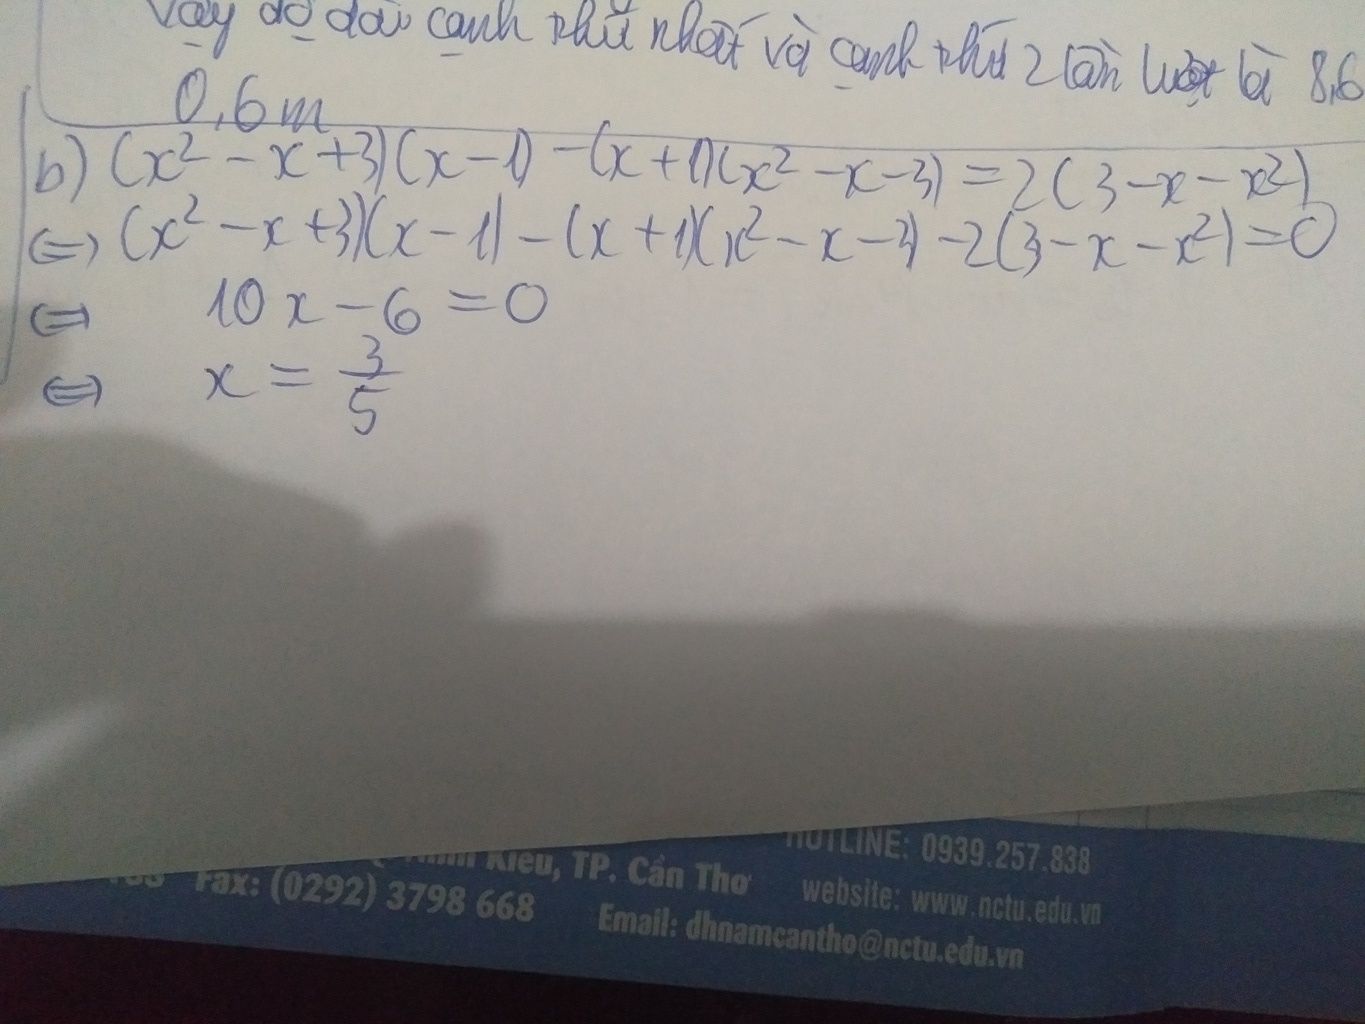 Vậy độ dài cạnh thứ nhất và cạnh thứ 2 lần lượt là 8,6
0,6m
b) (x² - x + 3)(x - 1) - (x + 1)(x² - x - 3) = 2(3 - x - x²)
⇔ (x² - x + 3)(x - 1) - (x + 1)(x² - x - 3) - 2(3 - x - x²) = 0
⇔ 10x - 6 = 0
⇔ x = 3/5
HOTLINE: 0939.257.838
Kiều, TP. Cần Thơ
website: www.nctu.edu.vn
Fax: (0292) 3798 668
Email: dhnamcantho@nctu.edu.vn